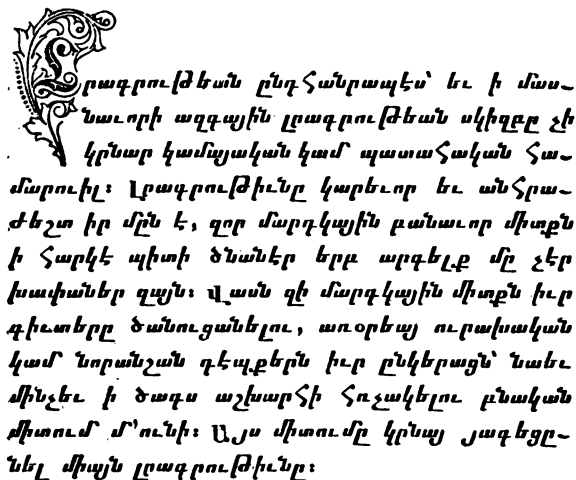 Լրագրութեան ընդհանրապէս՝ եւ ի մաս֊
նաւորի ազգային լրագրութեան սկիզբը չի
կրնար կամայական կամ պատահական հա֊
մարուիլ։ Լրագրութիւնը կարեւոր եւ անհրա֊
ժեշտ իր մըն է, զոր մարդկային բանաւոր միտքն
ի հարկէ պիտի ծնանէր երբ արգելք մը չէր
խափաներ զայն։ Վասն զի մարդկային միտքն իւր
գիւտերը ծանուցանելու, առօրեայ ուրախական
կամ նորանշան դէպքերն իւր ընկերացն՝ նաեւ
մինչեւ ի ծագս աշխարհի հռչակելու բնական
միտում մ՚ունի։ Այս միտումը կրնայ յագեցը֊
նել միայն լրագրութիւնը։